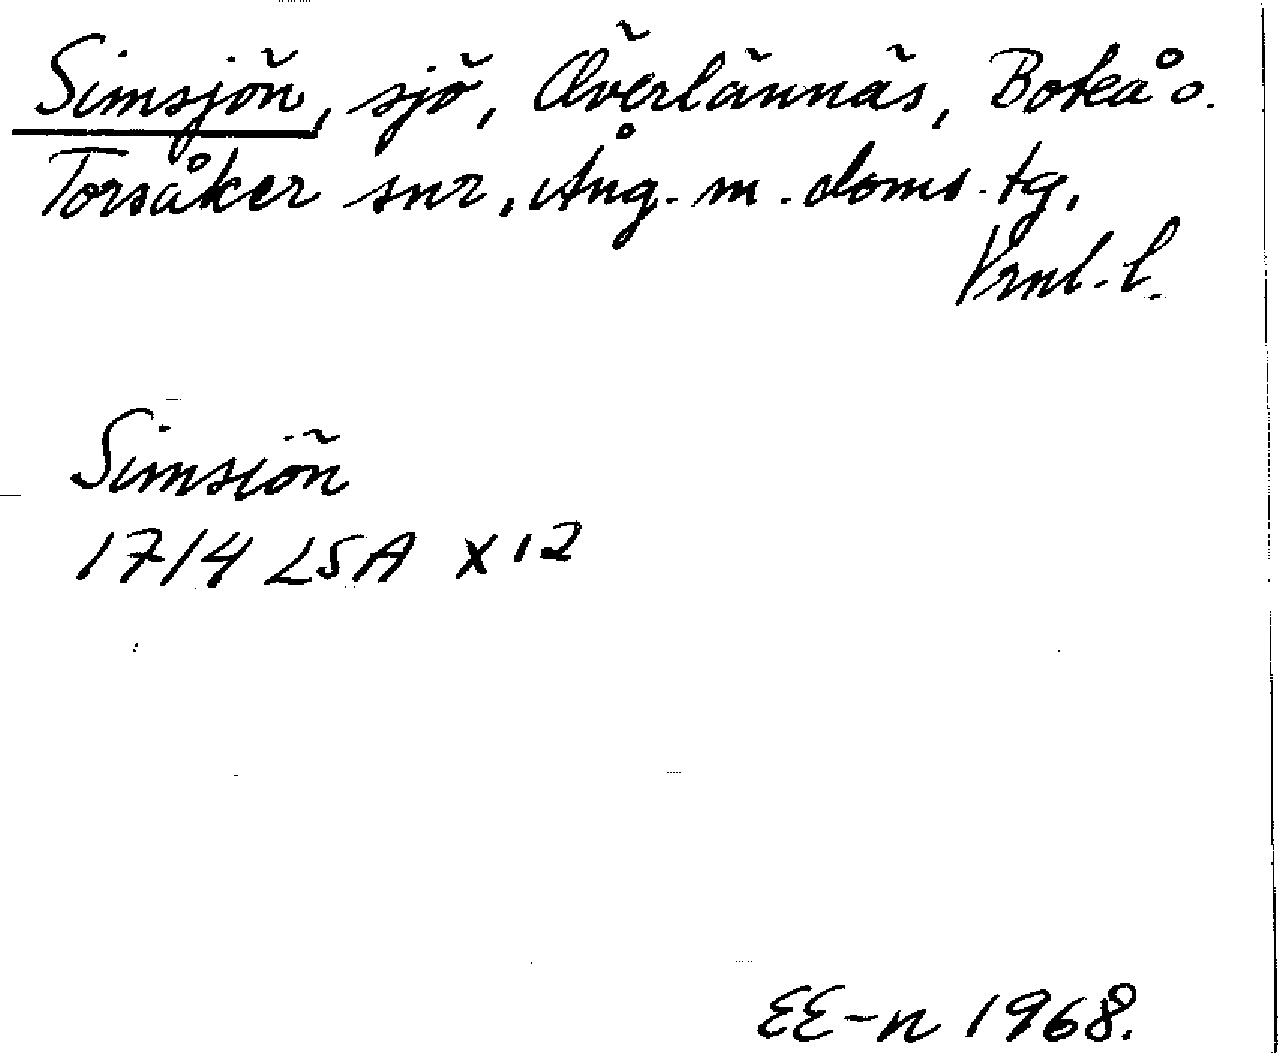 Simsjön, sjö, Överlännäs, Boteå o.
Torsåker snr, Ång. m. doms. tg,
Vrnl. l.
Simsiön
1714 LSA X 12
EE-n 1968.